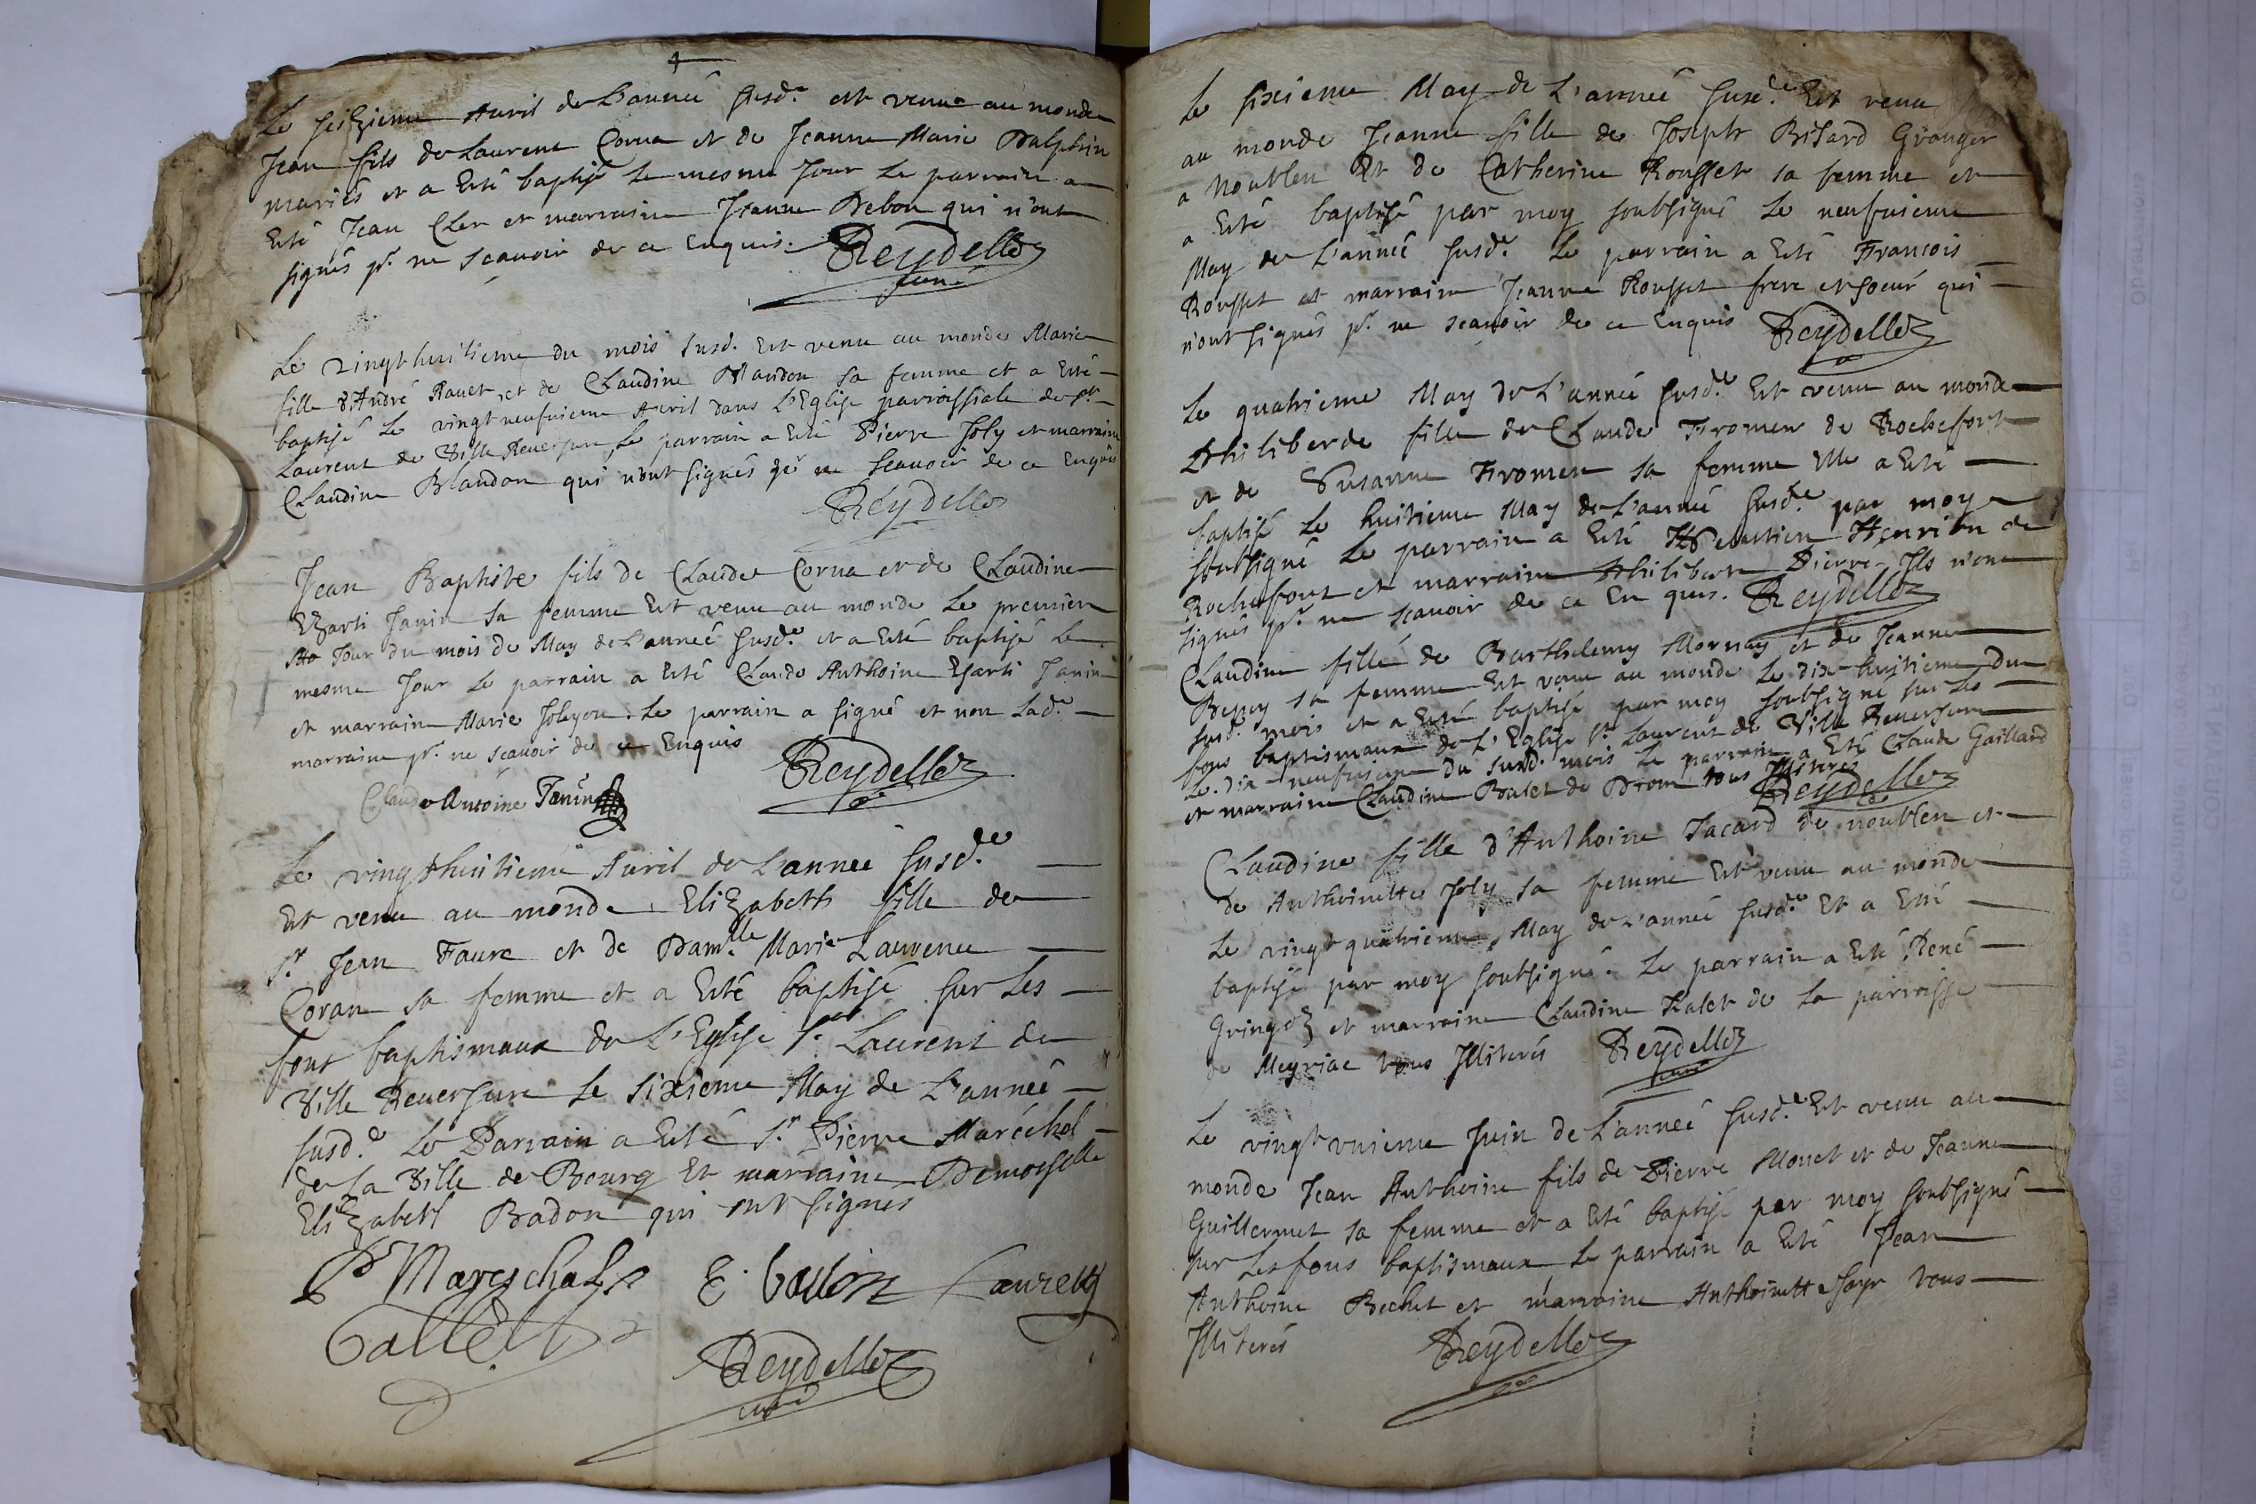 Le seizieme Avril de L'année susd.e est venu au monde
Jean fils de Laurent Corna et de Jeanne Marie Dalphin
mariés et a Esté baptisé Le mesme Jour Le parrain a
Esté Jean Cler et marraine Jeanne Debou qui n'ont
signés p.r ne scauoir de ce Enquis. Reydellet
curé
Le vingt huitieme du mois susd. Est venu au monde Marie
fille d'André Rauet et de Claudine Blandon sa femme et a Esté
baptisé Le vingt neufuieme Avril dans L'Eglise parroissiale de st
Laurent de Ville Reuersure, Le parrain a Esté Pierre Joly et marraine
Claudine Blandon qui n'ont signés p.r ne scauoir de ce Enquis
Reydellet
Jean Baptiste fils de Claude Corna et de Claudine
Janin sa femme Est venu au monde Le premier
Jour du mois de May de L'année susd.e et a Esté baptisé Le
mesme Jour Le parrain a Esté Claude Anthoine Janin
et marraine Marie Joleyon. Le parrain a signé et non Lad.e
marraine p.r ne scauoir de ce Enquis
Reydellet
Claude Antoine Janin
Le vingt huitieme Avril de L'année susd.e
Est venu au monde Elizabeth fille de
s.r Jean Faure et de Dam.lle Marie Laurence
Coran sa femme et a Esté baptisé sur Les
font baptismaux de L'Eglise s.t Laurent de
Ville Reuersure Le sixieme May de L'année
susd.e Le Parrain a Esté s.r Pierre Maréchal
de La Ville de Bourg Et marraine Demoyselle
Elizabeth Badon qui ont signés
P Mareschal E. Laurent
Reydellet
curé
Le sixieme May de L'année susd.e Est venu
au monde Jeanne fille de Joseph Bisard Granger
a Noublen Et de Catherine Rousset sa femme et
a Esté baptisé par moy soubsigné Le neufuieme
May de L'année susd.e Le parrain a Esté Francois
Rousset et marraine Jeanne Rousset frere et soeur qui
n'ont signés p.r ne scauoir de ce Enquis Reydellet
Le quatrieme May de L'année susd.e Est venu au monde
Philiberde fille de Claude Fromen de Rochefort
et de Susanne Fromen sa femme Elle a Esté
baptisé Le huitieme May de L'année susd.e par moy
soubsigné Le parrain a Esté Henrion de
Rochefort et marraine Philiberte Pierre Ils n'ont
signés p.r ne scauoir de ce Enquis. Reydellet
Claudine fille de Barthelemy Mornay et de Jeanne
Beny sa femme Est venu au monde Le dix huitieme du
susd. mois et a Esté baptisé par moy soubsigné sur Les
fons baptismaux de L'Eglise s.t Laurent de Ville Reuersure
Le dix neufuieme du susd. mois Le parrain a Esté Claude Gaillard
et marraine Claudine Balet de Drom tous Illiteres
Reydellet
Claudine fille d'Anthoine Jacard de noublen et
de Anthoinette Joly sa femme Est venu au monde
Le vingt quatrieme May de L'année susd.e Et a Esté
baptisé par moy soubsigné. Le parrain a Esté René
Gringoz et marraine Claudine Ralet de La parroisse
de Meyriac tous Illiterés Reydellet
curé
Le vingt vnieme Juin de L'année susd.e Est venu au
monde Jean Anthoine fils de Pierre Monet et de Jeanne
Guillermet sa femme et a Esté baptisé par moy soubsigné
sur Les fons baptismaux Le parrain a Esté Jean
Anthoine Bechet et marraine Anthoinette tous
Illiterés Reydellet